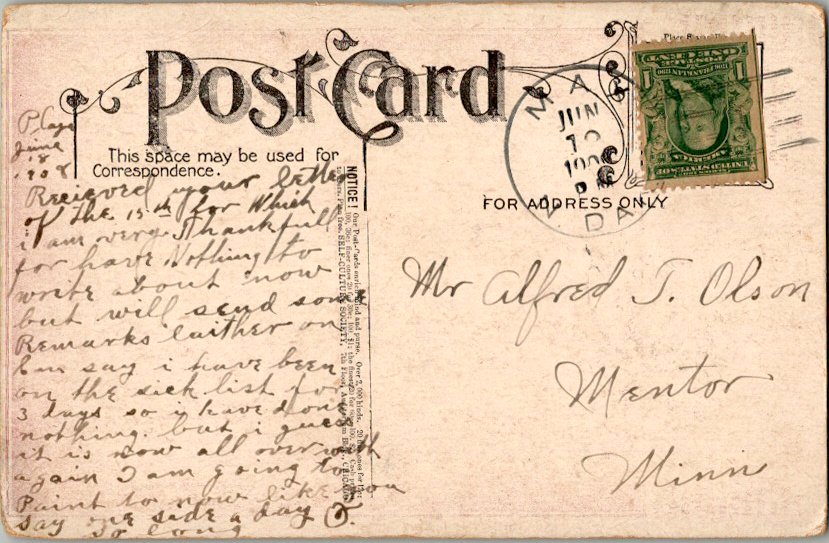 Post Card
This space may be used for
Correspondence.
FOR ADDRESS ONLY
NOTICE!
Our Post-Cards enrich mind and purse. Over 2,000 kinds.
SELF-CULTURE SOCIETY,
CHICAGO
MA
JUN
190
DA
ONE CENT
1 1
UNITED STATES OF
AMERICA
June
18
1908
Recieved your letter
of the 15th for Which
i am verry Thankfull
for have Nothing to
write about now
but will send som
Remarks laither on
Em say i have been
on the sick list for
3 days so i have done
nothing. but i guess
it is now all over with
again I am going to
Paint to now like you
say one side a day
So long
Mr Alfred T. Olson
Mentor
Minn